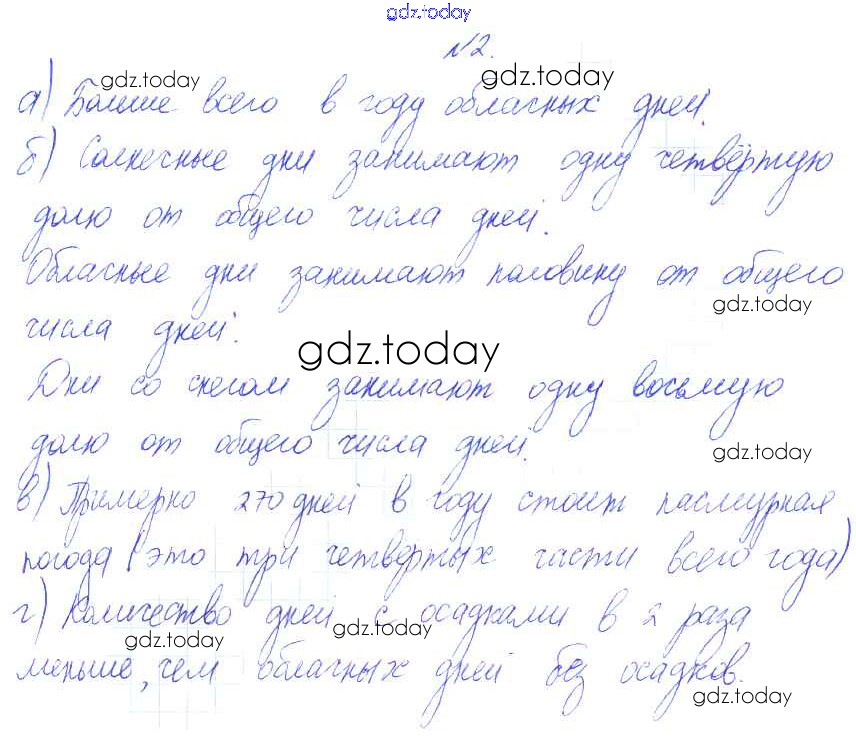 gdz.today
№2.
gdz.today gdz.today
а) Больше всего в году облачных дней.
б) Солнечные дни занимают одну четвёртую
долю от общего числа дней.
Облачные дни занимают половину от общего
gdz.today
числа дней.
gdz.today
Дни со снегом занимают одну восьмую
долю от общего числа дней.
gdz.today
в) Примерно 270 дней в году стоит пасмурная
погода (это три четвёртых части всего года)
г) Количество дней с осадками в 2 раза
gdz.today gdz.today
меньше, чем облачных дней без осадков.
gdz.today